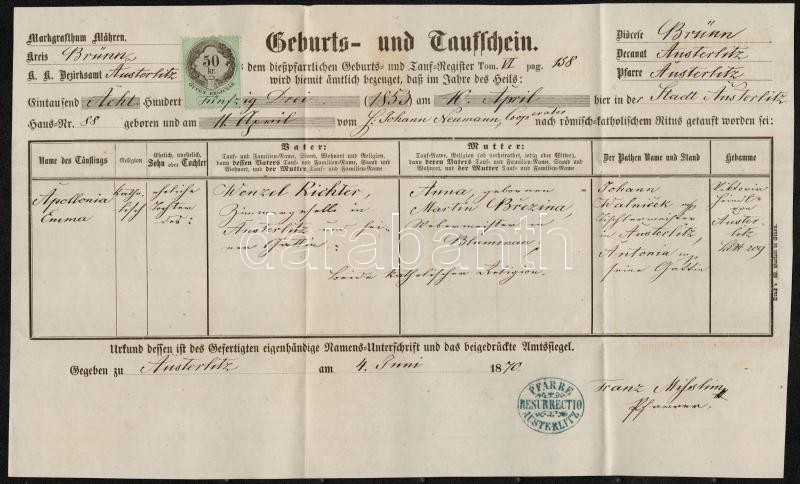 Markgrafthum Mähren.
Kreis Brünn
K. K. Bezirksamt Austerlitz
50
kr.
Geburts- und Taufschein.
Diöcese Brünn
Decanat Austerlitz
Pfarre Austerlitz
s dem dießpfarrlichen Geburts- und Tauf-Register Tom. VI pag. 158
wird hiemit ämtlich bezeuget, daß im Jahre des Heils:
Eintausend Acht Hundert fünfzig Drei (1853) am 10. April hier in der Stadt Austerlitz
Haus-Nr. 88 geboren und am 11. April vom H. Johann Neumann, Cooperator nach römisch-katholischem Ritus getauft worden sei:
Name des Täuflings
Religion
Ehelich, unehelich, Sohn oder Tochter
Vater:
Tauf- und Familien-Name, Stand, Wohnort und Religion, dann dessen Vaters Tauf- und Familien-Name, Stand und Wohnort, und der Mutter Tauf- und Familien-Name
Mutter:
Tauf- und Familien-Name, Religion (ob verheiratet, ledig oder Witwe), dann deren Vaters Tauf- und Familien-Name, Stand und Wohnort, und der Mutter Tauf- und Familien-Name
Der Pathen Name und Stand
Hebamme
Apollonia
Emma
katho-
lisch
eheliche
Tochter
des:
Wenzel Richter,
Zimmergeselle in
Austerlitz und sei-
nen Gattin:
Anna, geborenen
Martin Březina,
Webermeister in
Blumenau,
beide katholischen Religion.
Johann
Walniček
Tischtermeister
in Austerlitz,
Antonia
seine Gattin
Viktoria
Heindl
Auster-
litz
209
darabanth
Urkund dessen ist des Gefertigten eigenhändige Namens-Unterschrift und das beigedrückte Amtssiegel.
Gegeben zu Austerlitz am 4. Juni 1870
PFARRE
RESURRECTIO
AUSTERLITZ
Franz
Pfarrer.